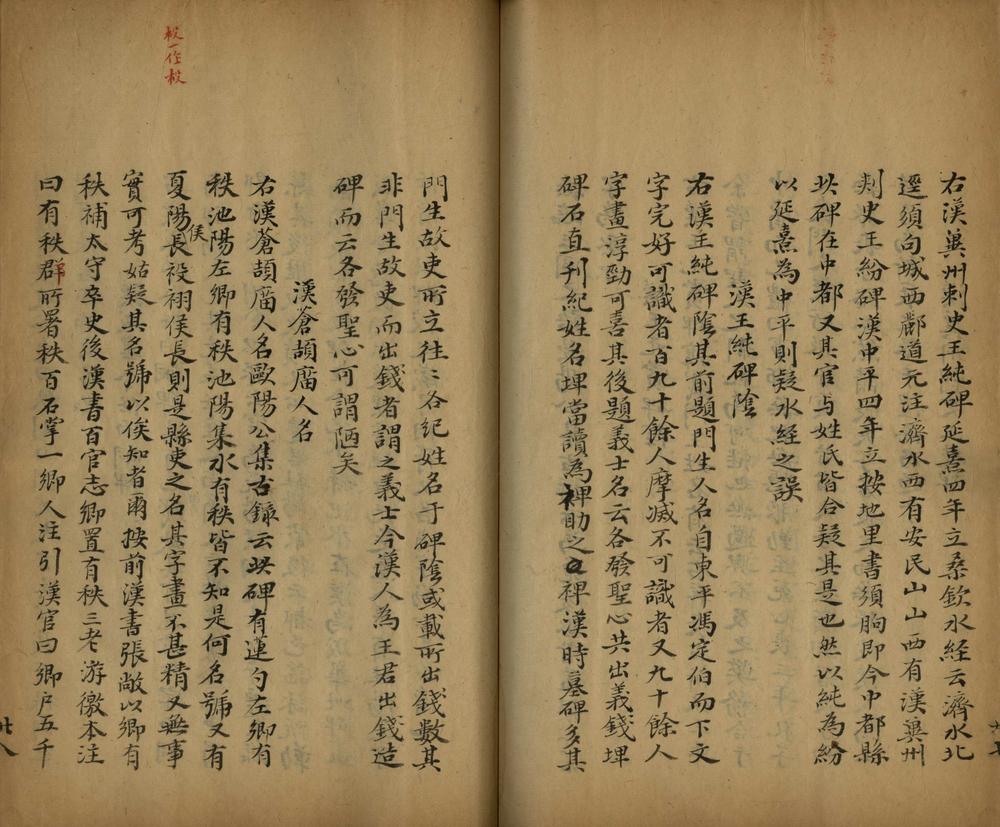 右漢兾州刺史王純碑延熹四年立桑欽水经云濟水北
逕須句城西酈道元注濟水西有安民山山西有漢兾州
刾史王紛碑漢中平四年立按地里書須朐即今中都縣
此碑在中都又其官与姓氏皆合疑其是也然以純為紛
以延熹為中平則疑水经之誤
漢王純碑陰
右漢王純碑陰其前題門生人名自東平馮定伯而下文
字完好可識者百九十餘人摩滅不可識者又九十餘人
字畫淳勁可喜其後題義士名云各發聖心共出義錢埤
碑石直刊紀姓名埤當讀為裨助之裨漢時墓碑多其
門生故吏所立往〻各纪姓名于碑陰或載所出錢数其
非門生故吏而出錢者謂之義士今漢人為王君出錢造
碑而云各發聖心可謂陋矣
漢蒼頡庿人名
右漢蒼頡庿人名歐陽公集古錄云此碑有蓮勺左卿有
秩池陽左卿有秩池陽集水有秩皆不知是何名號又有
夏陽長祋祤侯長則是縣吏之名其字畫不甚精又無事
侯
實可考姑疑其名號以俟知者爾按前漢書張敞以卿有
秩補太守卒史後漢書百官志卿置有秩三老游徼本注
曰有秩群所署秩百石掌一卿人注引漢官曰卿戶五千
祋一作祋
廿八